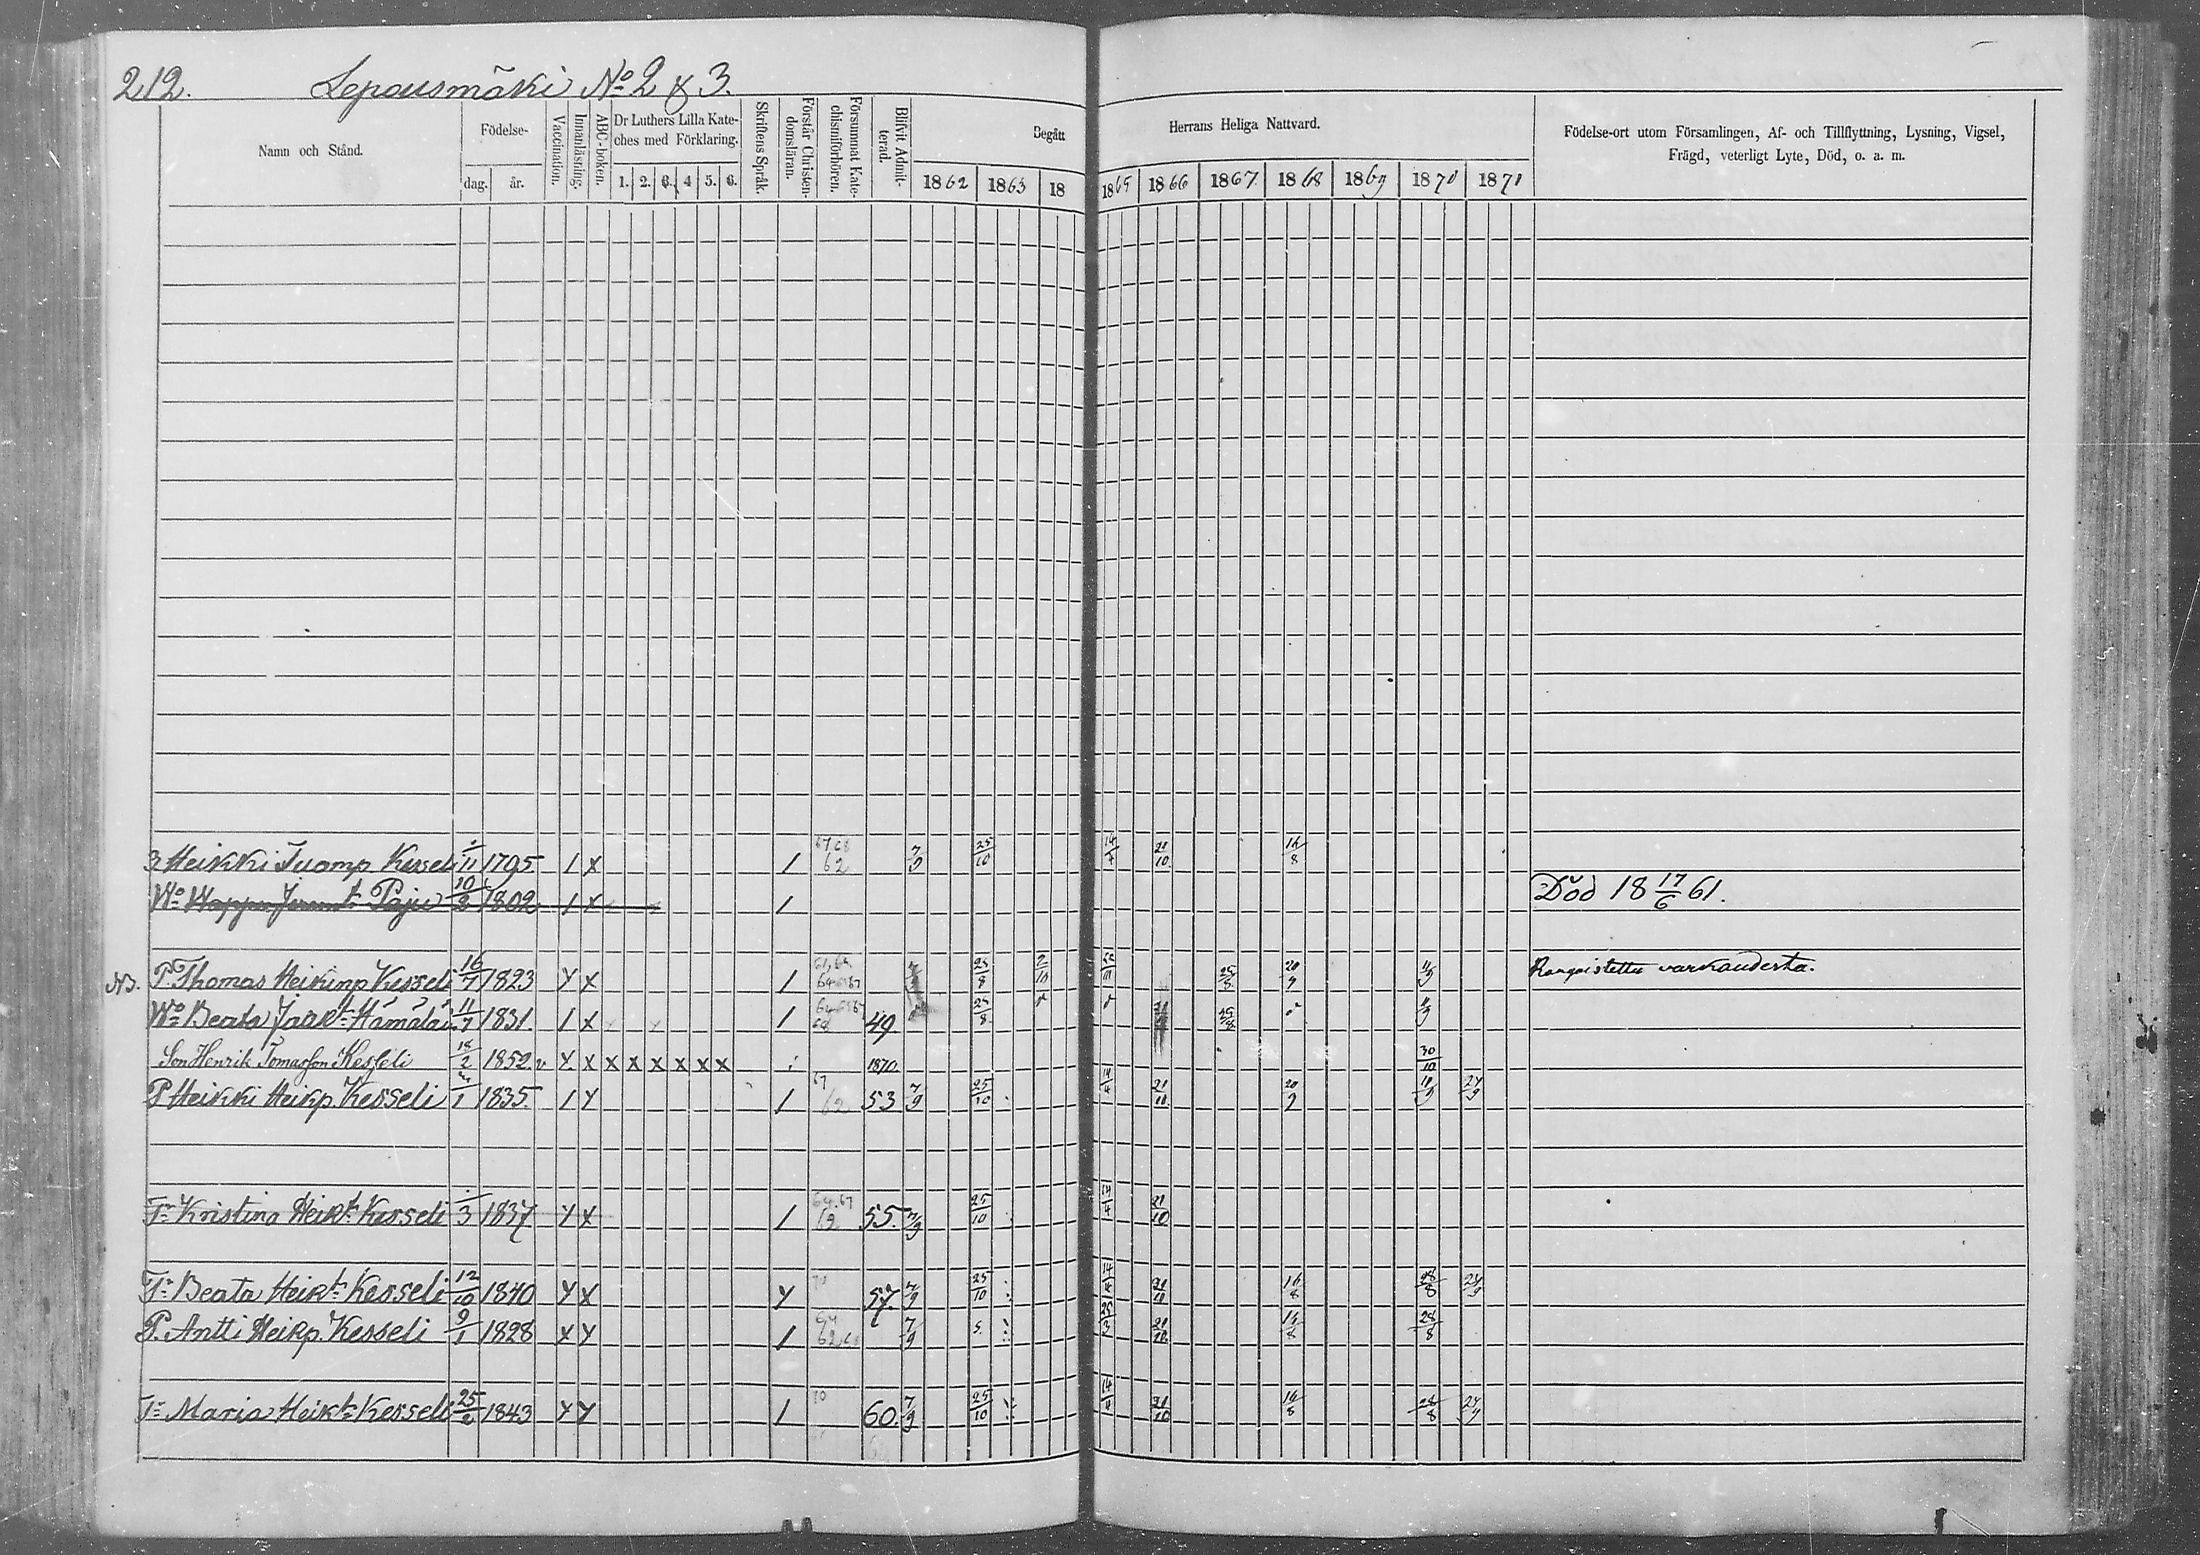 212. Lepousmäki No 2 & 3.
Namn och Stånd.
Födelse-
dag. år.
Vaccination.
Innanläsning.
ABC-boken.
Dr Luthers Lilla Kate-
ches med Förklaring.
1. 2. 3. 4 5. 6.
Skriftens Språk.
Förstår Christen-
domsläran.
Försummat Kate-
chismiförhören.
Blifvit Admit-
terad.
Begått Herrans Heliga Nattvard.
1862 1863 18 1865 1866 1867. 1868 1869 1870 1871
Födelse-ort utom Församlingen, Af- och Tillflyttning, Lysning, Vigsel,
Frägd, veterligt Lyte, Död, o. a. m.
3 Heikki Tuomp. Kesseli 1/11 1795. 1 x 1 67 68 62 7/9 25/10 14/4 21/10 16/8
Wo Paju 10/2 1802 1 x 1 Död 18 17/6 61.
NB. P. Thomas Heikinp Kesseli 16/7 1823 Y x 1 25/8 2/10 25/8 20/9 11/9 Rangaistettu varkaudesta.
Wo Beata Jaak.t Hämäläi 11/7 1831. 1 x 1 49 25/8 25/8 11/9
Son Henrik Tomasson Kesseli 18/2 1852. v Y x x x x x x x 1870 30/10
P Heikki Heikp. Kesseli 1/1 1835. 1 Y 1 67 62 53 7/9 25/10 14/4 21/10 20/9 11/9 24/9
Tr Kristina Heik.t Kesseli 1/3 1837 Y x 1 64.67 62 55. 7/9 25/10 14/4 21/10
Tr Beata Heik.t Kesseli 12/10 1840 Y x Y 70 57. 7/9 25/10 14/4 21/10 16/8 28/8 24/9
P. Antti Heikp. Kesseli 9/1 1828 x Y 1 64 62.68 7/9 5. 25/3 21/10. 16/8 28/8
Tr Maria Heik.t Kesseli 25/2 1843 Y Y 1 70 60. 7/9 25/10 14/4 21/10 16/8 28/8 24/9